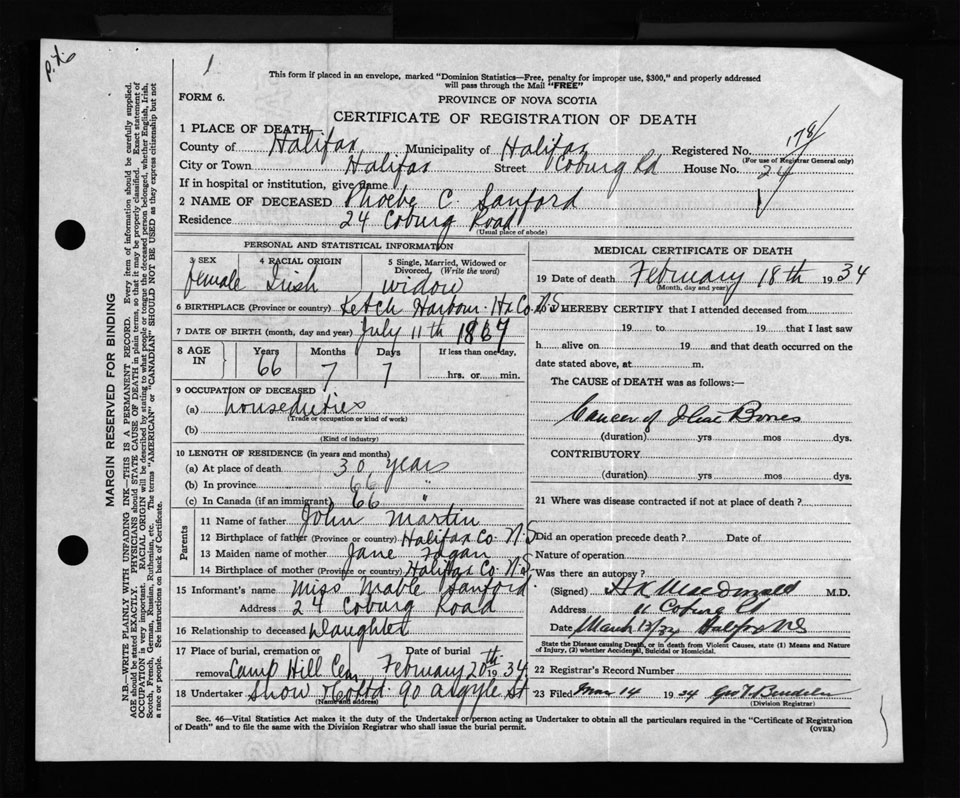 p.t.o
1
This form if placed in an envelope, marked "Dominion Statistics—Free, penalty for improper use, $300," and properly addressed
will pass through the Mail "FREE"
FORM 6.
PROVINCE OF NOVA SCOTIA
CERTIFICATE OF REGISTRATION OF DEATH
1 PLACE OF DEATH
County of Halifax Municipality of Halifax Registered No. 178
(For use of Registrar General only)
City or Town Halifax Street Coburg Rd House No. 24
If in hospital or institution, give name
2 NAME OF DECEASED Phoebe C. Sanford
Residence 24 Coburg Road
(Usual place of abode)
PERSONAL AND STATISTICAL INFORMATION
3 SEX 4 RACIAL ORIGIN 5 Single, Married, Widowed or
Divorced, (Write the word)
female Irish widow
6 BIRTHPLACE (Province or country) Ketch Harbour Hx Co. N.S
7 DATE OF BIRTH (month, day and year) July 11th 1867
8 AGE IN Years Months Days If less than one day,
66 7 7 hrs. or min.
9 OCCUPATION OF DECEASED
(a) houseduties
(Trade or occupation or kind of work)
(b)
(Kind of industry)
10 LENGTH OF RESIDENCE (in years and months)
(a) At place of death 30 years
(b) In province 66 "
(c) In Canada (if an immigrant) 66 "
Parents
11 Name of father John Martin
12 Birthplace of father (Province or country) Halifax Co. N.S
13 Maiden name of mother Jane Fagan
14 Birthplace of mother (Province or country) Halifax Co. N.S.
15 Informant's name Miss Mable Sanford
Address 24 Coburg Roald
16 Relationship to deceased Daughter
17 Place of burial, cremation or Date of burial
removal Camp Hill Cem February 20th 1934
18 Undertaker Snow & Co Ltd 90 Argyle St.
(Name and address)
MEDICAL CERTIFICATE OF DEATH
19 Date of death February 18th 1934
(Month, day and year)
20 I HEREBY CERTIFY that I attended deceased from
19 to 19 that I last saw
h alive on 19 and that death occurred on the
date stated above, at m.
The CAUSE of DEATH was as follows:—
Cancer of Iliac Bones
(duration) yrs mos dys.
CONTRIBUTORY
(duration) yrs mos dys.
21 Where was disease contracted if not at place of death?
Did an operation precede death? Date of
Nature of operation
Was there an autopsy?
(Signed) H K MacDonald M.D.
Address 11 Coburg Rd
Date March 13/34 Halifax NS
State the Disease causing Death, or in death from Violent Causes, state (1) Means and Nature
of Injury, (2) whether Accidental, Suicidal or Homicidal.
22 Registrar's Record Number
23 Filed Mar 14 1934
(Division Registrar)
Sec. 46—Vital Statistics Act makes it the duty of the Undertaker or person acting as Undertaker to obtain all the particulars required in the "Certificate of Registration
of Death" and to file the same with the Division Registrar who shall issue the burial permit.
(OVER)
MARGIN RESERVED FOR BINDING
N.B.—WRITE PLAINLY WITH UNFADING INK—THIS IS A PERMANENT RECORD. Every item of information should be carefully supplied.
AGE should be stated EXACTLY. PHYSICIANS should STATE CAUSE OF DEATH in plain terms, so that it may be properly classified. Exact statement of
OCCUPATION is very important. RACIAL ORIGIN will be described by stating to what people or tongue the deceased person belonged, whether English, Irish,
Scotch, French, German, Russian, Ruthenian, etc. The terms "AMERICAN" or "CANADIAN" SHOULD NOT BE USED as they express citizenship but not
a race or people. See instructions on back of Certificate.